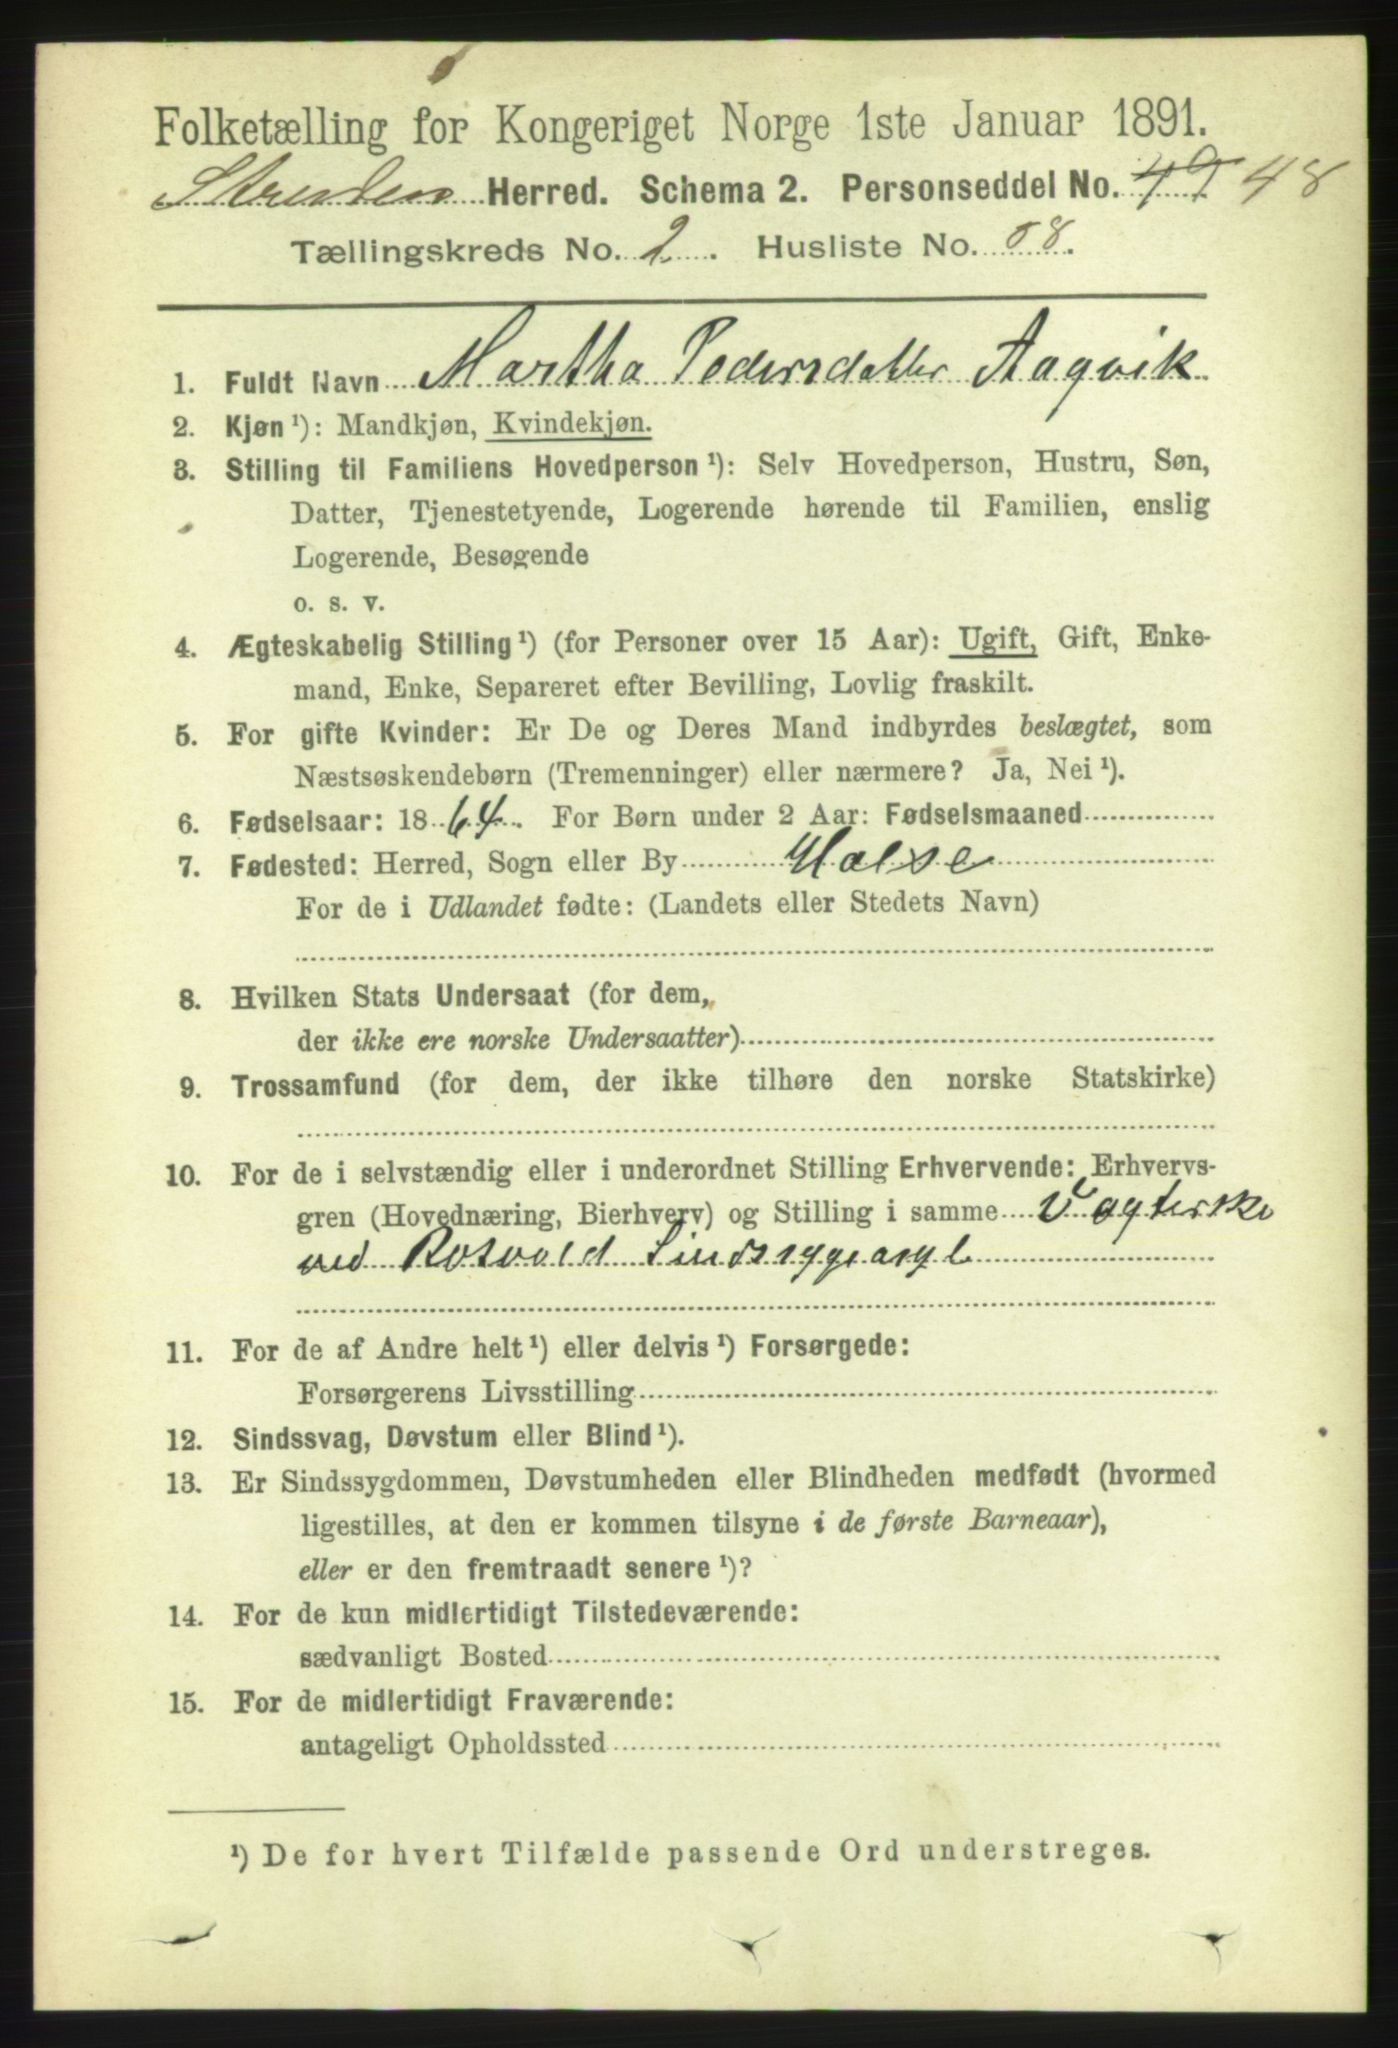 Folketælling for Kongeriget Norge 1ste Januar 1891.
Strinden Herred. Schema 2. Personseddel No. 49 48
Tællingskreds No. 2. Husliste No. 58.
1. Fuldt Navn Martha Pedersdatter Aagvik
2. Kjøn ¹): Mandkjøn, Kvindekjøn.
3. Stilling til Familiens Hovedperson ¹): Selv Hovedperson, Hustru, Søn,
Datter, Tjenestetyende, Logerende hørende til Familien, enslig
Logerende, Besøgende
o. s. v.
4. Ægteskabelig Stilling ¹) (for Personer over 15 Aar): Ugift, Gift, Enke-
mand, Enke, Separeret efter Bevilling, Lovlig fraskilt.
5. For gifte Kvinder: Er De og Deres Mand indbyrdes beslægtet, som
Næstsøskendebørn (Tremenninger) eller nærmere? Ja, Nei ¹).
6. Fødselsaar: 1864. For Børn under 2 Aar: Fødselsmaaned
7. Fødested: Herred, Sogn eller By Halse
For de i Udlandet fødte: (Landets eller Stedets Navn)
8. Hvilken Stats Undersaat (for dem,
der ikke ere norske Undersaatter)
9. Trossamfund (for dem, der ikke tilhøre den norske Statskirke)
10. For de i selvstændig eller i underordnet Stilling Erhvervende: Erhvervs-
gren (Hovednæring, Bierhverv) og Stilling i samme Vagterske
ved Rotvold Sindsygeasyl
11. For de af Andre helt ¹) eller delvis ¹) Forsørgede:
Forsørgerens Livsstilling
12. Sindssvag, Døvstum eller Blind ¹).
13. Er Sindssygdommen, Døvstumheden eller Blindheden medfødt (hvormed
ligestilles, at den er kommen tilsyne i de første Barneaar),
eller er den fremtraadt senere ¹)?
14. For de kun midlertidigt Tilstedeværende:
sædvanligt Bosted
15. For de midlertidigt Fraværende:
antageligt Opholdssted
¹) De for hvert Tilfælde passende Ord understreges.